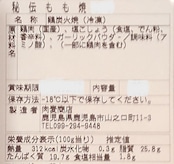 秘伝もも焼
名　称 鶏炭火焼（冷凍）
原材料名 鶏肉（国産）、塩こしょう（食塩、でん粉、香辛料）、ガーリックパウダー／調味料（アミノ酸）、（一部に鶏肉を含む）
内容量
賞味期限
保存方法 -18℃以下で保存してください。
製造者 肉愛商店
鹿児島県鹿児島市山之口町11-3
TEL099-294-9448
栄養成分表示(100g当り)　推定値
熱量 312kcal 炭水化物 0.3g 脂質 25.8g
たんぱく質 19.7g 食塩相当量 1.8g